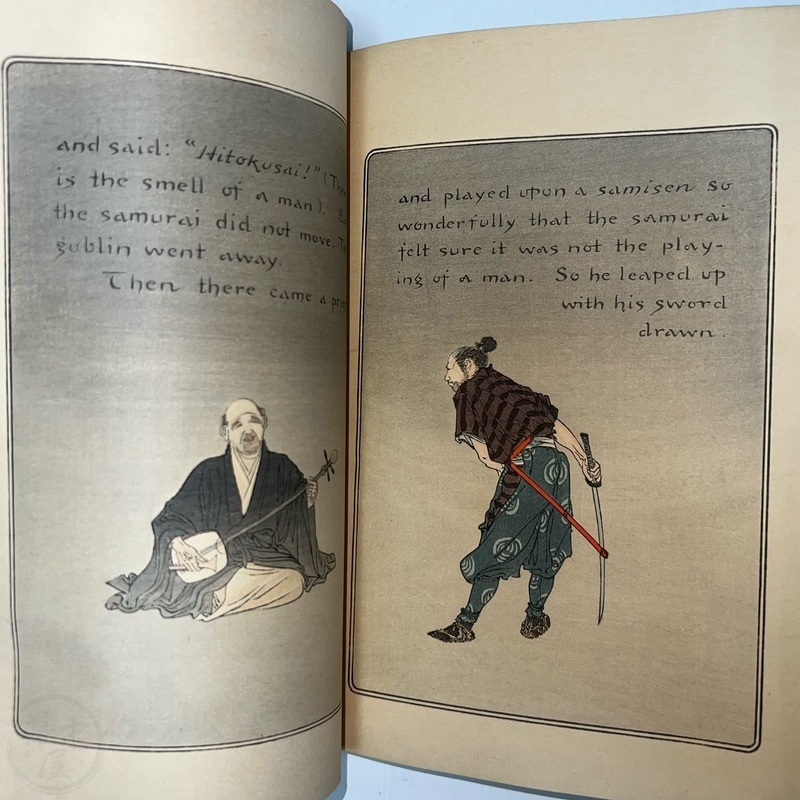 and said: "Hitokusai!"
is the smell of a man).
the samurai did not move.
goblin went away.
Then there came a
and played upon a samisen so
wonderfully that the samurai
felt sure it was not the play-
ing of a man. So he leaped up
with his sword
drawn.